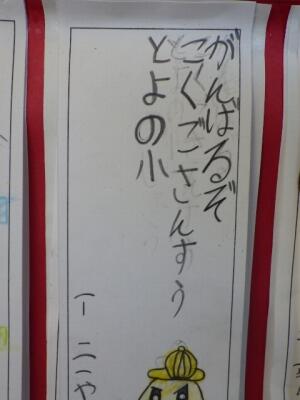 がんばるぞ
こくごさんすう
とよの小
(一 二 一や